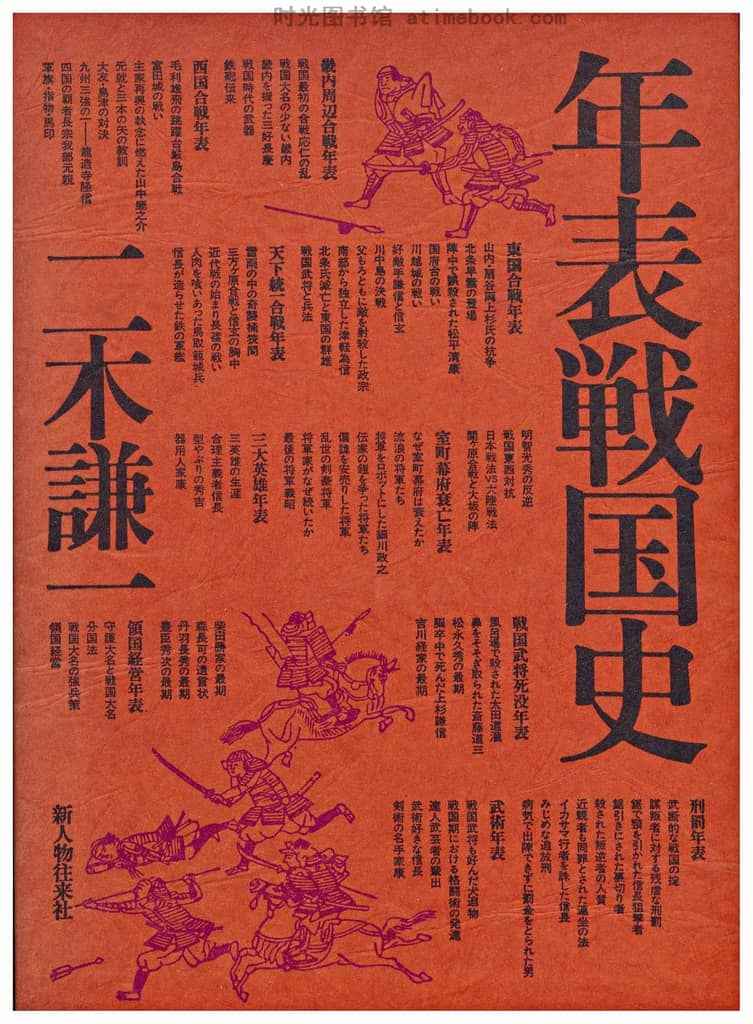 时光图书馆 atimebook.com
年表戦国史
二木謙一
畿内周辺合戦年表
戦国最初の合戦応仁の乱
戦国大名の少ない畿内
畿内を握った三好長慶
戦国時代の武器
鉄砲伝来
西国合戦年表
毛利雄飛の跳躍台厳島合戦
富田城の戦い
主家再興の執念に燃えた山中鹿之介
元就と三本の矢の教訓
大友・島津の対決
九州三強の一——龍造寺隆信
四国の覇者長宗我部元親
軍旗・指物・馬印
東国合戦年表
山内・扇谷両上杉氏の抗争
北条早雲の登場
陣中で誤殺された松平清康
国府台の戦い
川越城の戦い
好敵手謙信と信玄
川中島の決戦
父もろともに敵を射殺した政宗
南部から独立した津軽為信
北条氏滅亡と東国の群雄
戦国武将と兵法
天下統一合戦年表
雷雨の中の奇襲桶狭間
三方ヶ原合戦と信玄の胸中
近代戦の始まり長篠の戦い
人肉を喰いあった鳥取籠城兵
信長が造らせた鉄の軍艦
明智光秀の反逆
戦国東西対抗
日本戦法VS大陸戦法
関ヶ原合戦と大坂の陣
室町幕府衰亡年表
なぜ室町幕府は衰えたか
流浪の将軍たち
将軍をロボットにした細川政之
伝家の鎧を争った将軍たち
偏諱を安売りした将軍
乱世の剣豪将軍
将軍家がなぜ続いたか
最後の将軍義昭
三大英雄年表
三英雄の生涯
合理主義者信長
型やぶりの秀吉
器用人家康
戦国武将死没年表
風呂場で殺された太田道灌
鼻をそそぎ取られた斎藤道三
松永久秀の最期
脳卒中で死んだ上杉謙信
吉川経家の最期
柴田勝家の最期
森長可の遺言状
丹羽長秀の最期
豊臣秀次の最期
領国経営年表
守護大名と戦国大名
分国法
戦国大名の強兵策
領国経営
刑罰年表
武断的な戦国の掟
謀叛者に対する残虐な刑罰
鋸で頸を引かれた信長狙撃者
鋸引きにされた裏切り者
殺された叛逆者の人質
近親者も同罪とされた連坐の法
イカサマ行者を誅した信長
みじめな追放刑
病気で出陣できずに罰金をとられた男
武術年表
戦国武将も好んだ犬追物
戦国期における格闘術の発達
達人武芸者の輩出
武術好きな信長
剣術の名手家康
新人物往来社